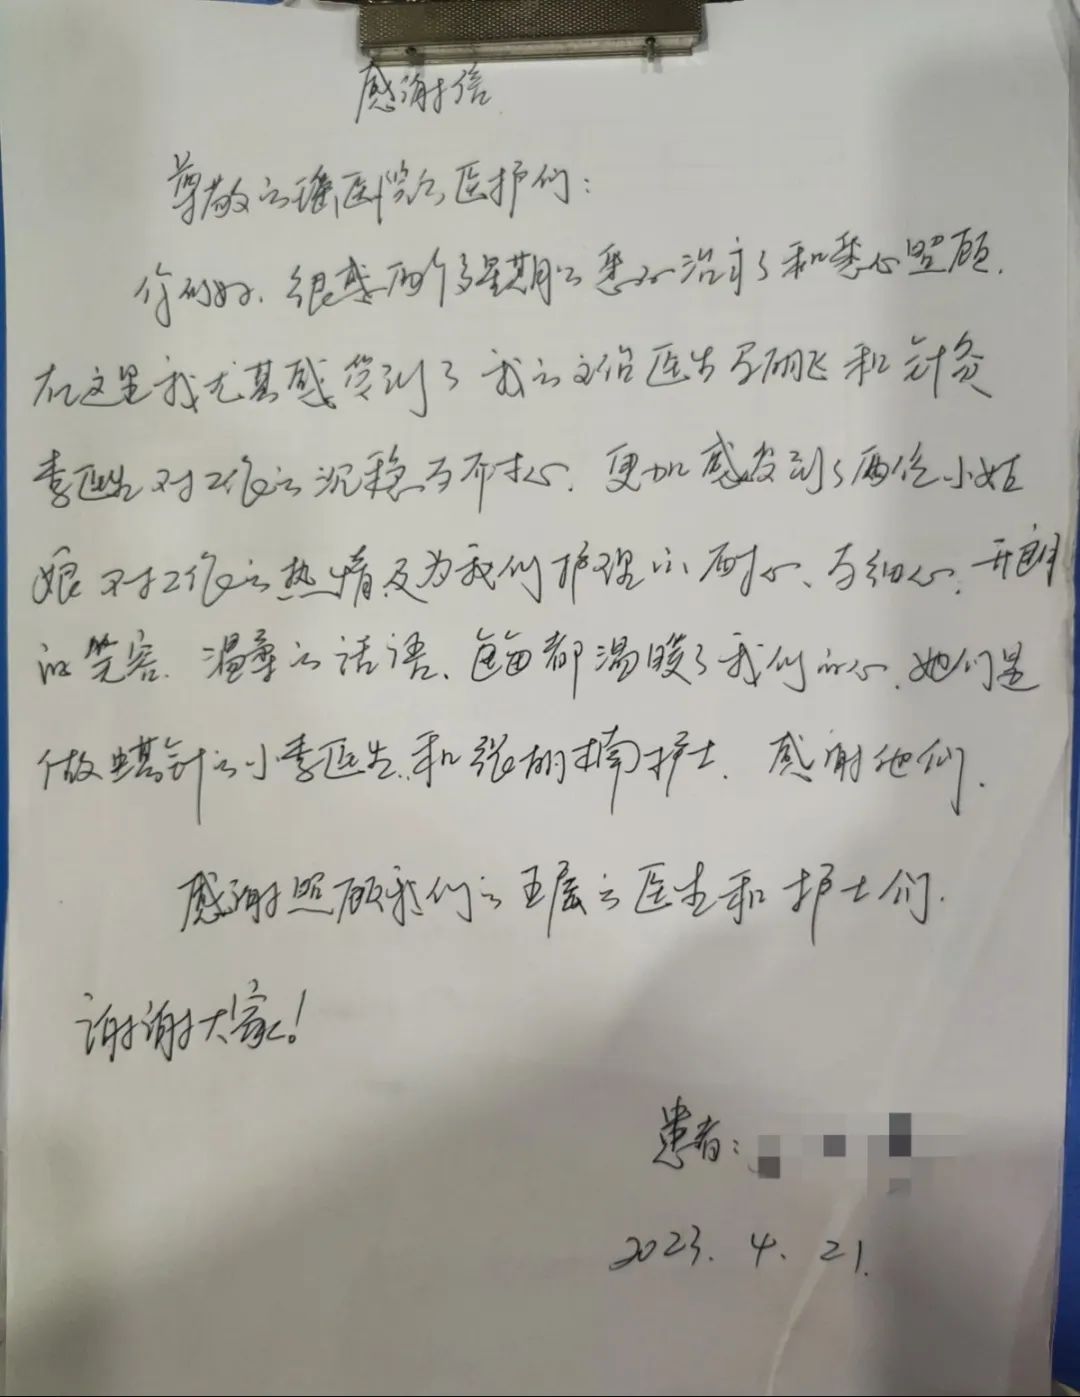 感谢信
尊敬的瑶医院的医护们：
你们好、很感 两个多星期的悉心治疗和悉心照顾.
在这里我尤其感受到了我的主治医生 和针灸
李医生对工作的沉稳与耐心、更加感受到了两位小姑
娘对工作的热情及为我们护理的耐心、与细心、开朗
的笑容、温馨的话语、 都温暖了我们的心、她们是
做蜂针的小李医生、和张 楠护士、感谢他们.
感谢照顾我们的五层的医生和护士们.
谢谢大家！
患者：
2023. 4. 21.